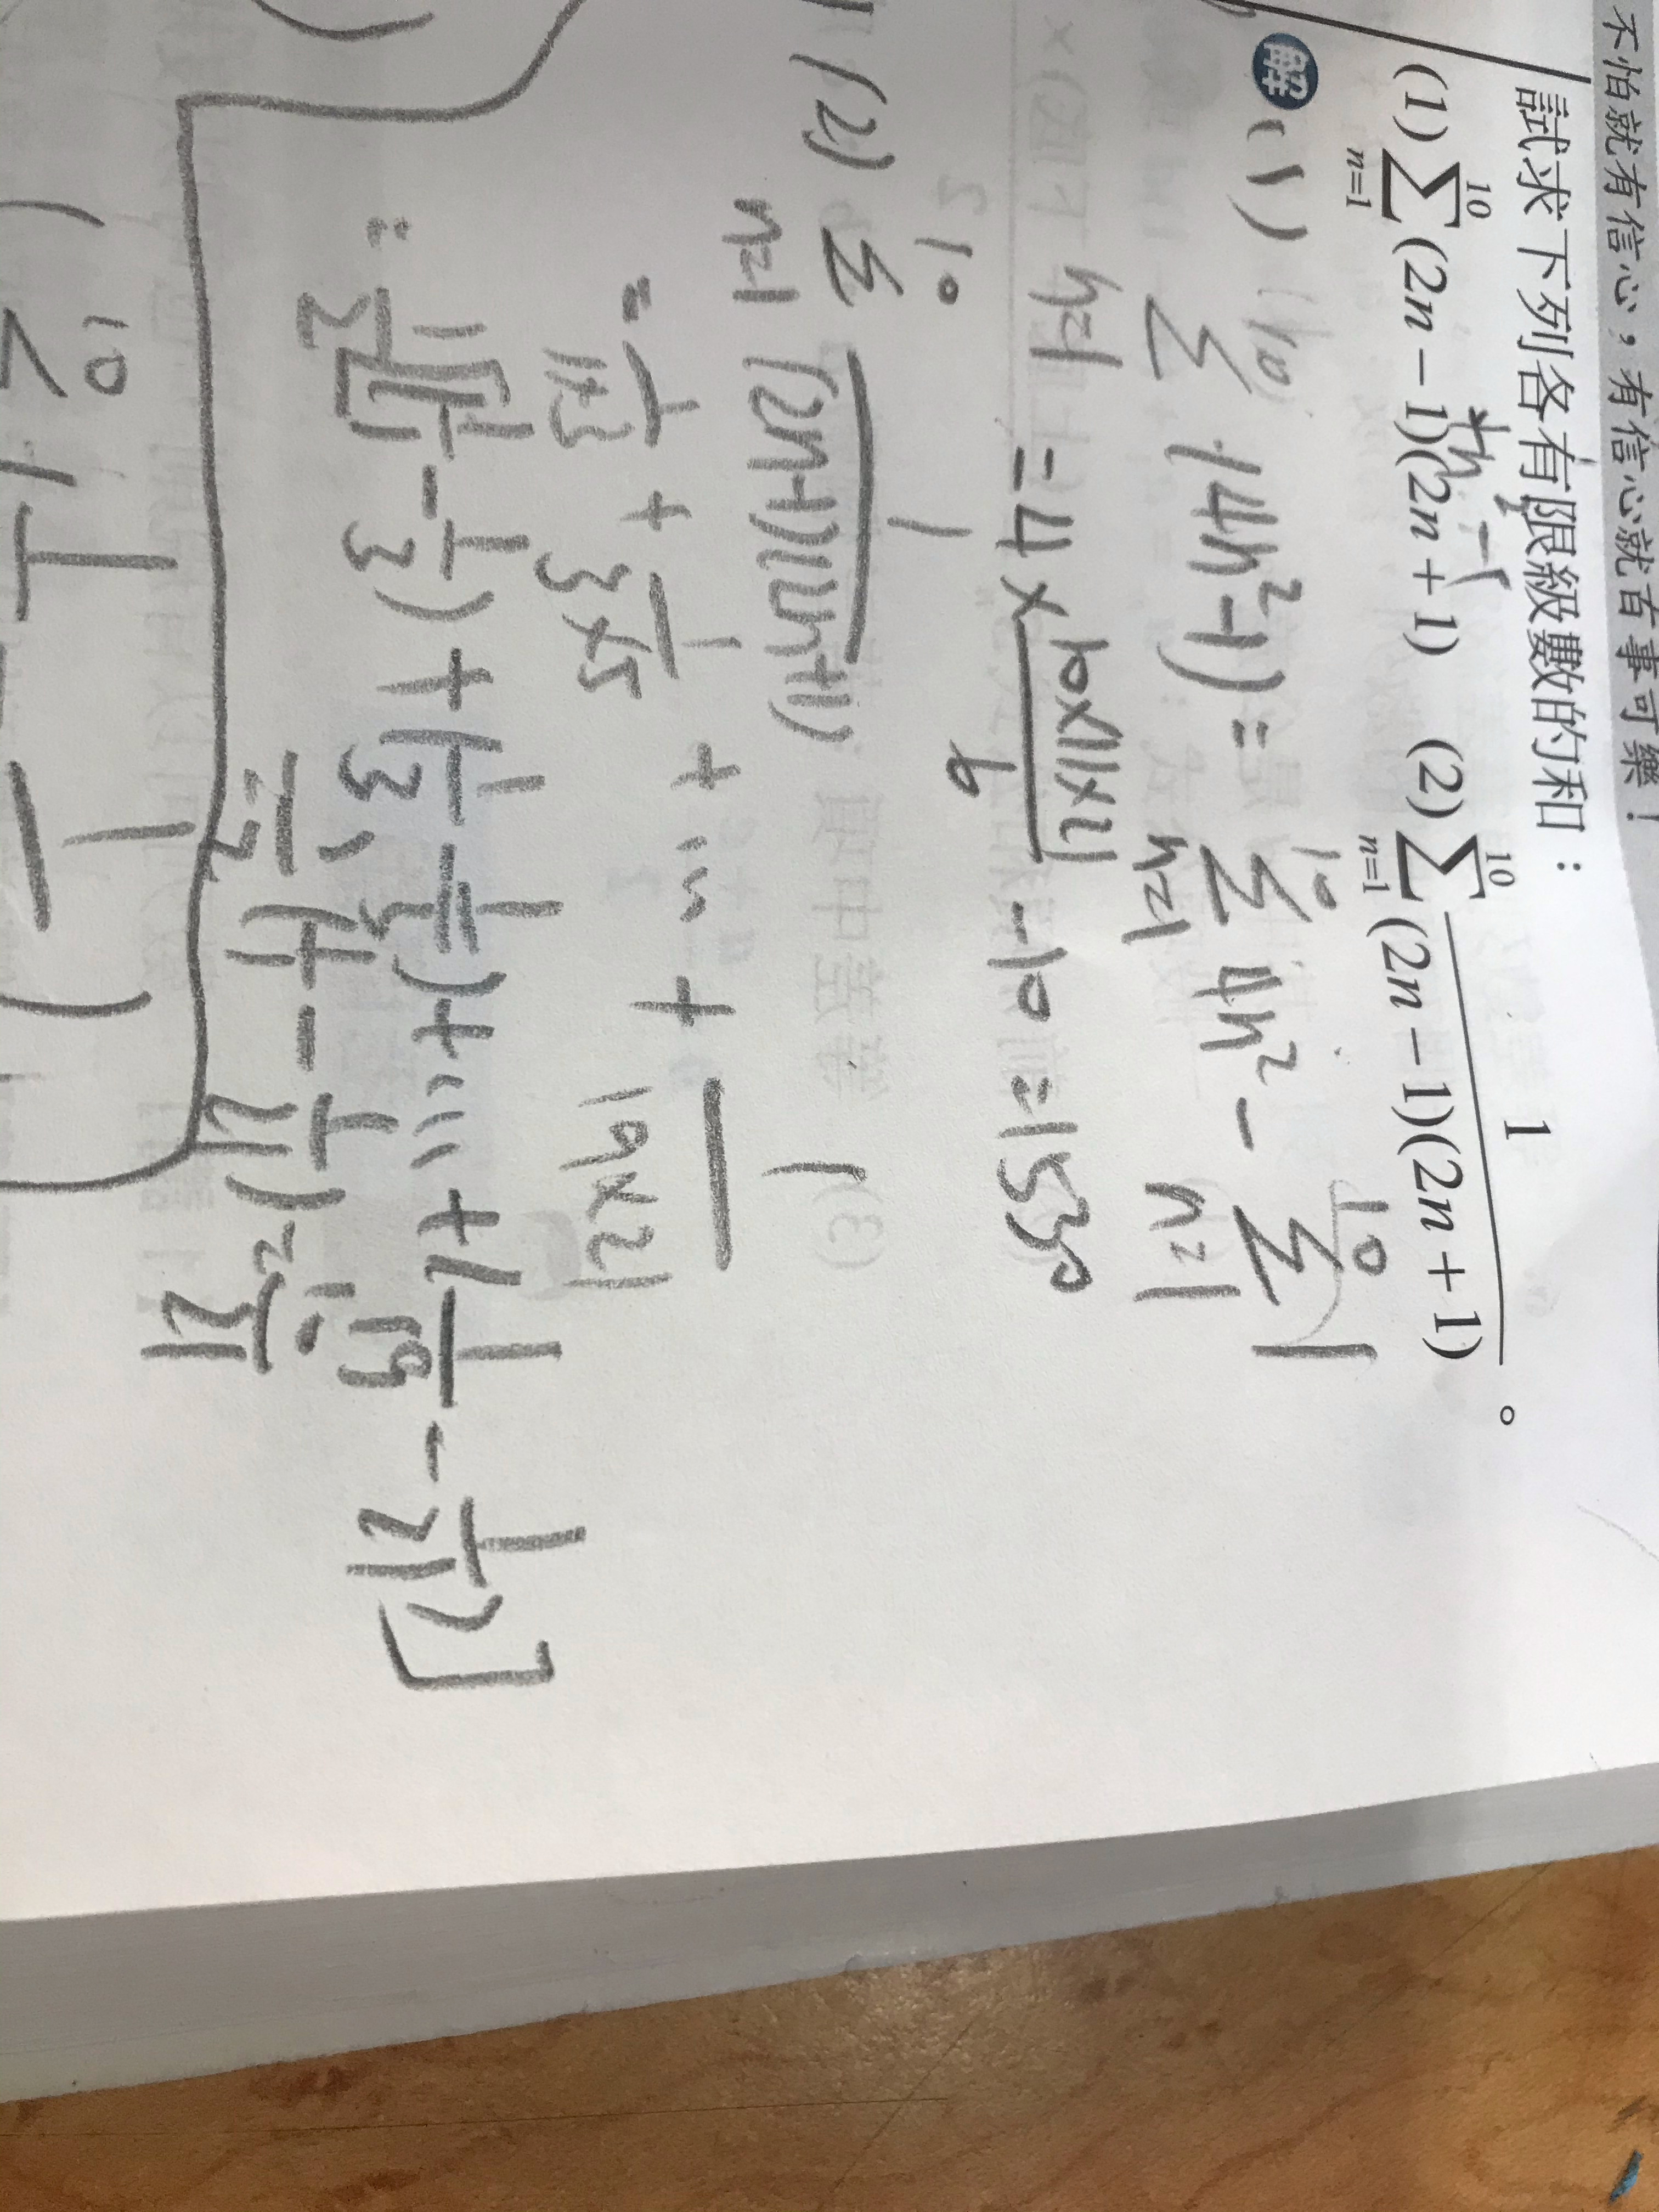 不怕就有信心，有信心就百事可樂！
試求下列各有限級數的和：
(1) \sum_{n=1}^{10} (2n-1)(2n+1) (2) \sum_{n=1}^{10} \frac{1}{(2n-1)(2n+1)}。
解 (1) \sum_{n=1}^{10} (4n^2-1) = \sum_{n=1}^{10} 4n^2 - \sum_{n=1}^{10} 1
= 4 × \frac{10×11×21}{6} - 10 = 1530
(2) \sum_{n=1}^{10} \frac{1}{(2n-1)(2n+1)}
= \frac{1}{1×3} + \frac{1}{3×5} + ... + \frac{1}{19×21}
= \frac{1}{2}[(\frac{1}{1} - \frac{1}{3}) + (\frac{1}{3} - \frac{1}{5}) + ... + (\frac{1}{19} - \frac{1}{21})]
= \frac{1}{2}(1 - \frac{1}{21}) = \frac{10}{21}
10 1 1